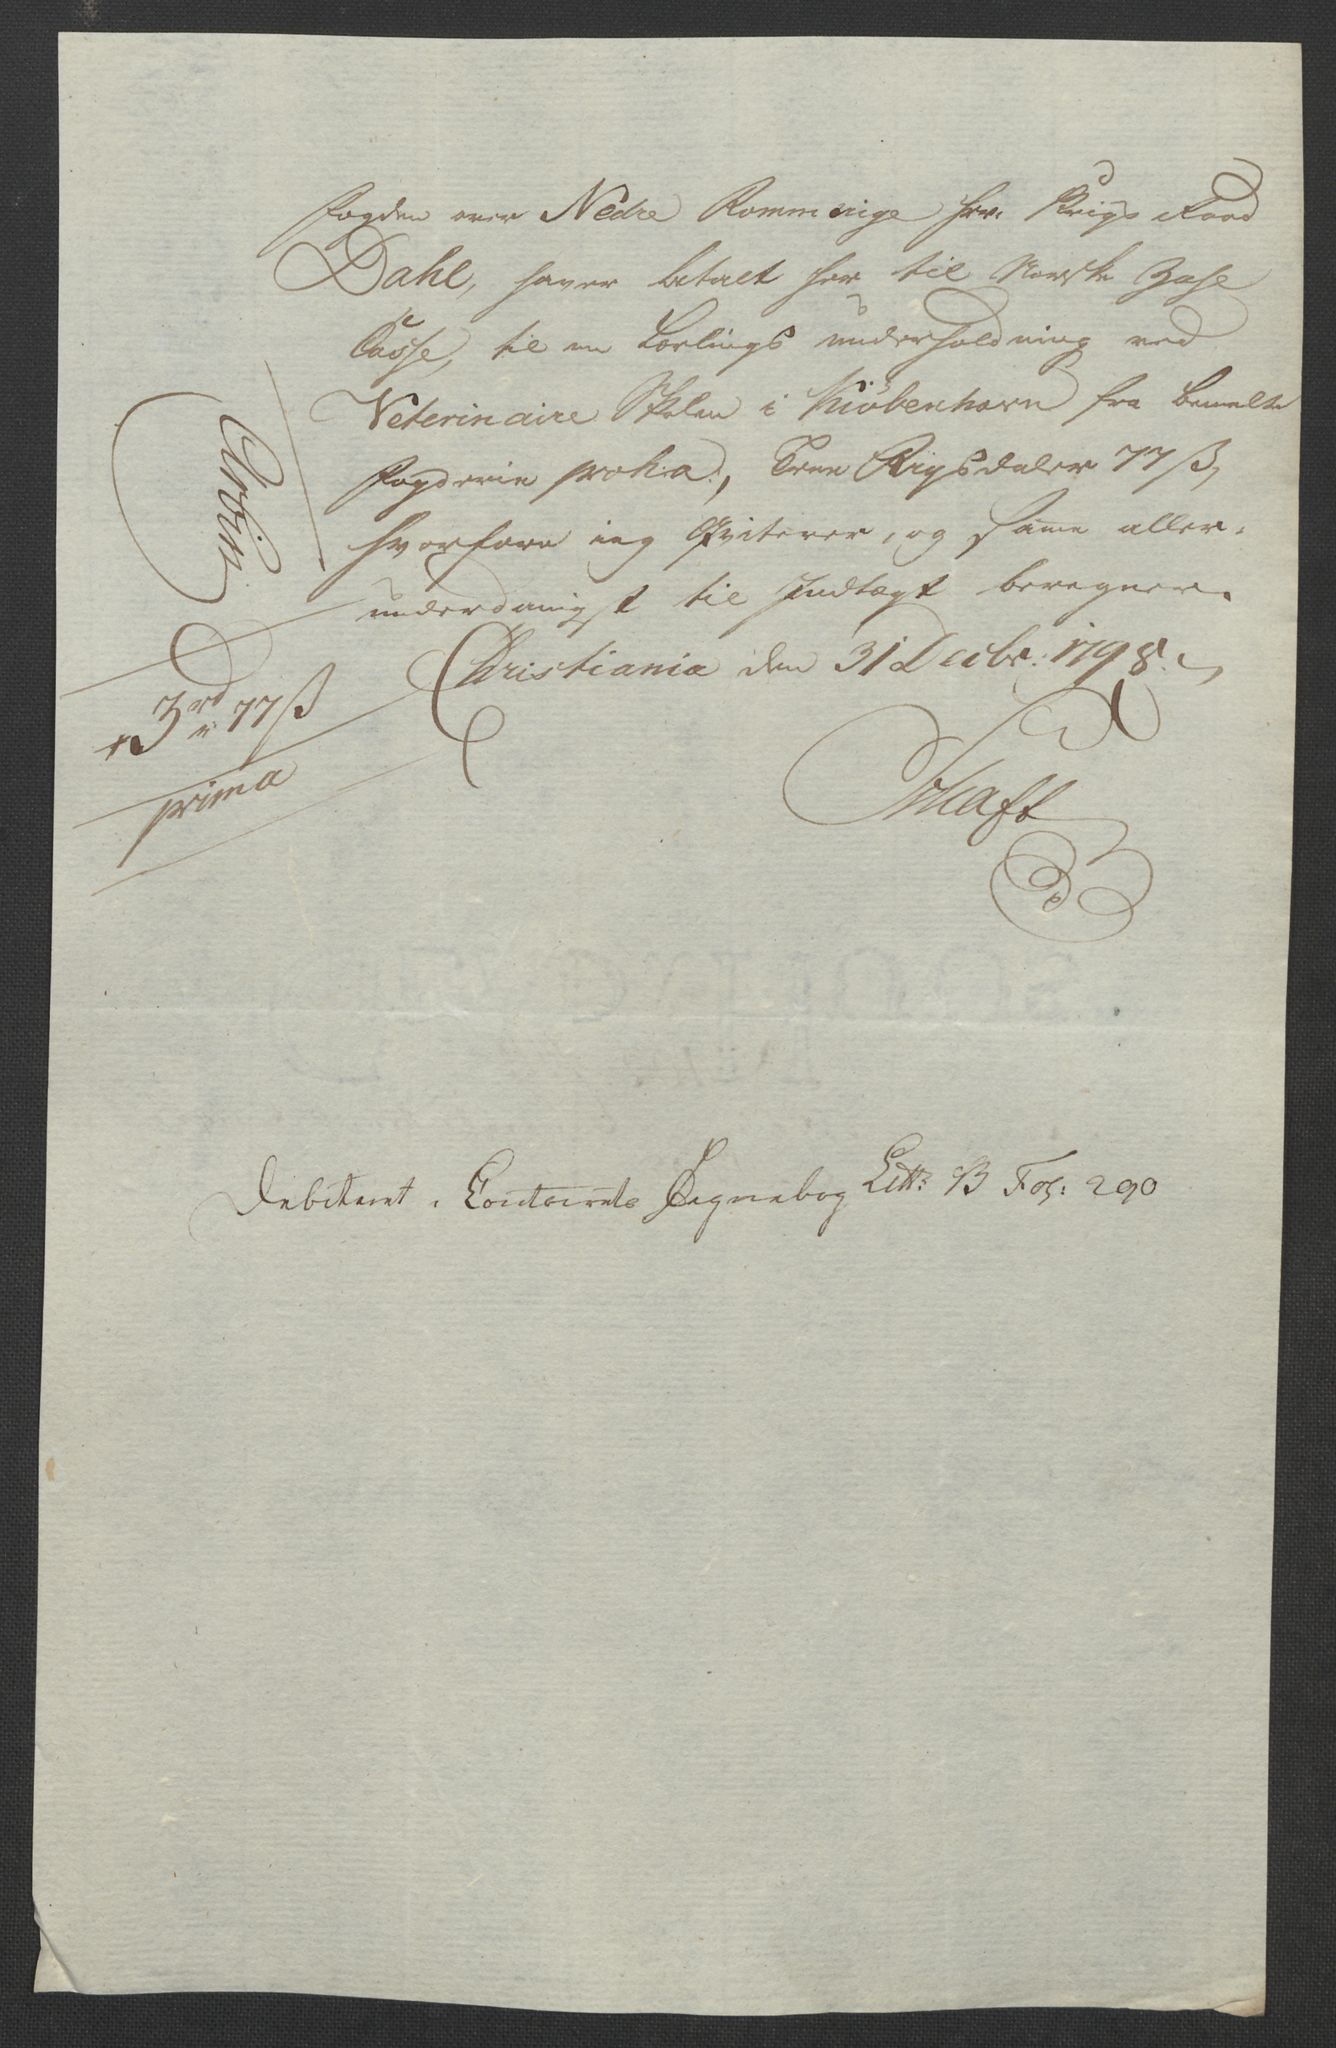 Fogden over Nedre Rommerige Hr. Krigs Raad
Dahl, haver betalt her til Norske Zahl
Casse, til en Lærlings underholdning ved
Veterinaire Skolen i Kiöbenhavn fra bemelte
Fogderie pro h: a:, Tree Rigsdaler 77 ß,
hvorfore ieg Qviterer, og same aller-
underdanigst til Indtægt beregner.
Christiania den 31 Decbr: 1798.
3 rd 77 ß
prima
Debiteret i Contoirets Regnebog Littr B Fol: 290